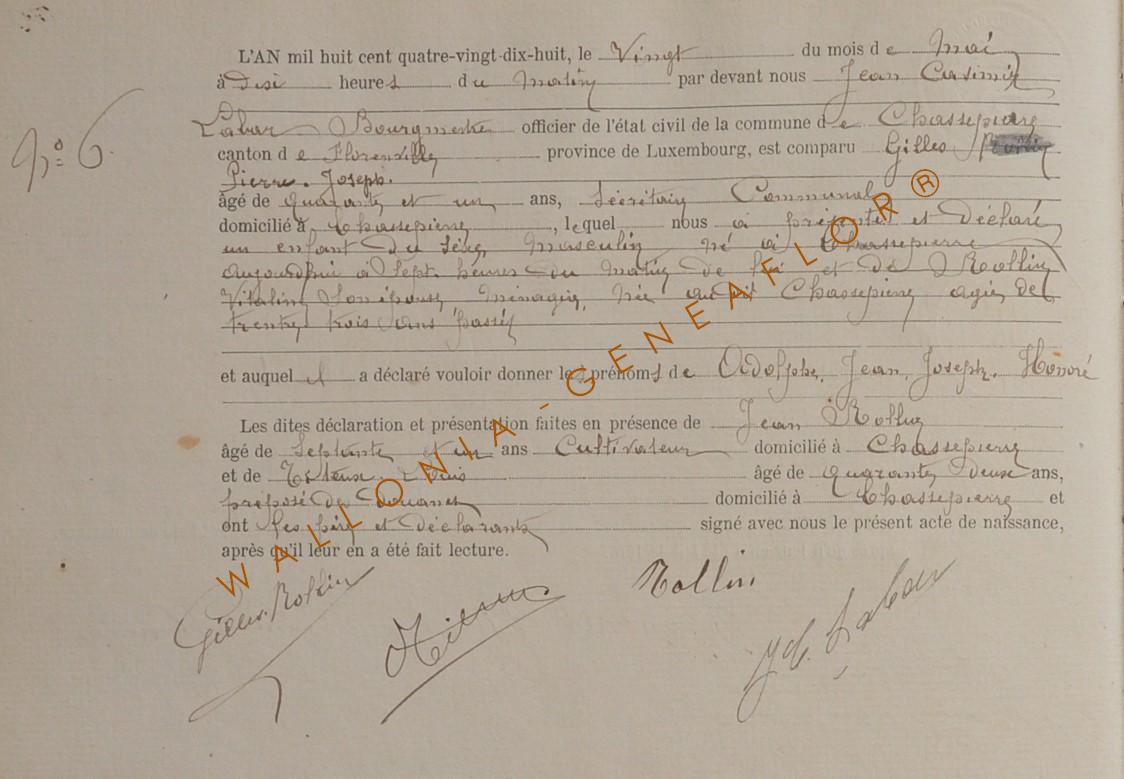 L'AN mil huit cent quatre-vingt-dix-huit, le Vingt du mois de Mai
à Dix heures du matin par devant nous Jean Casimir
Labar Bourgmestre officier de l'état civil de la commune de Chassepierre
N° 6.
canton de Florenville province de Luxembourg, est comparu Gilles
Pierre. Joseph.
âgé de quarante et un ans, Secrétaire Communal
domicilié à Chassepierre, lequel nous a présenté et déclaré
un enfant du sexe masculin né à Chassepierre
aujourdhui à sept heures du matin de lui et de Rollin
son épouse, ménagère, née audit Chassepierre agée de
trente trois ans passés
et auquel il a déclaré vouloir donner les prénoms de Adolphe, Jean, Joseph. Honoré
Les dites déclaration et présentation faites en présence de Jean Rollin
âgé de septante et un ans Cultivateur domicilié à Chassepierre
et de âgé de quarante deux ans,
préposé des Douanes domicilié à Chassepierre et
ont les père et déclarants signé avec nous le présent acte de naissance,
après qu'il leur en a été fait lecture.
Gilles-Rollin
Rollin.
JC. Labar
WALLONIA-GENEAFLOR®